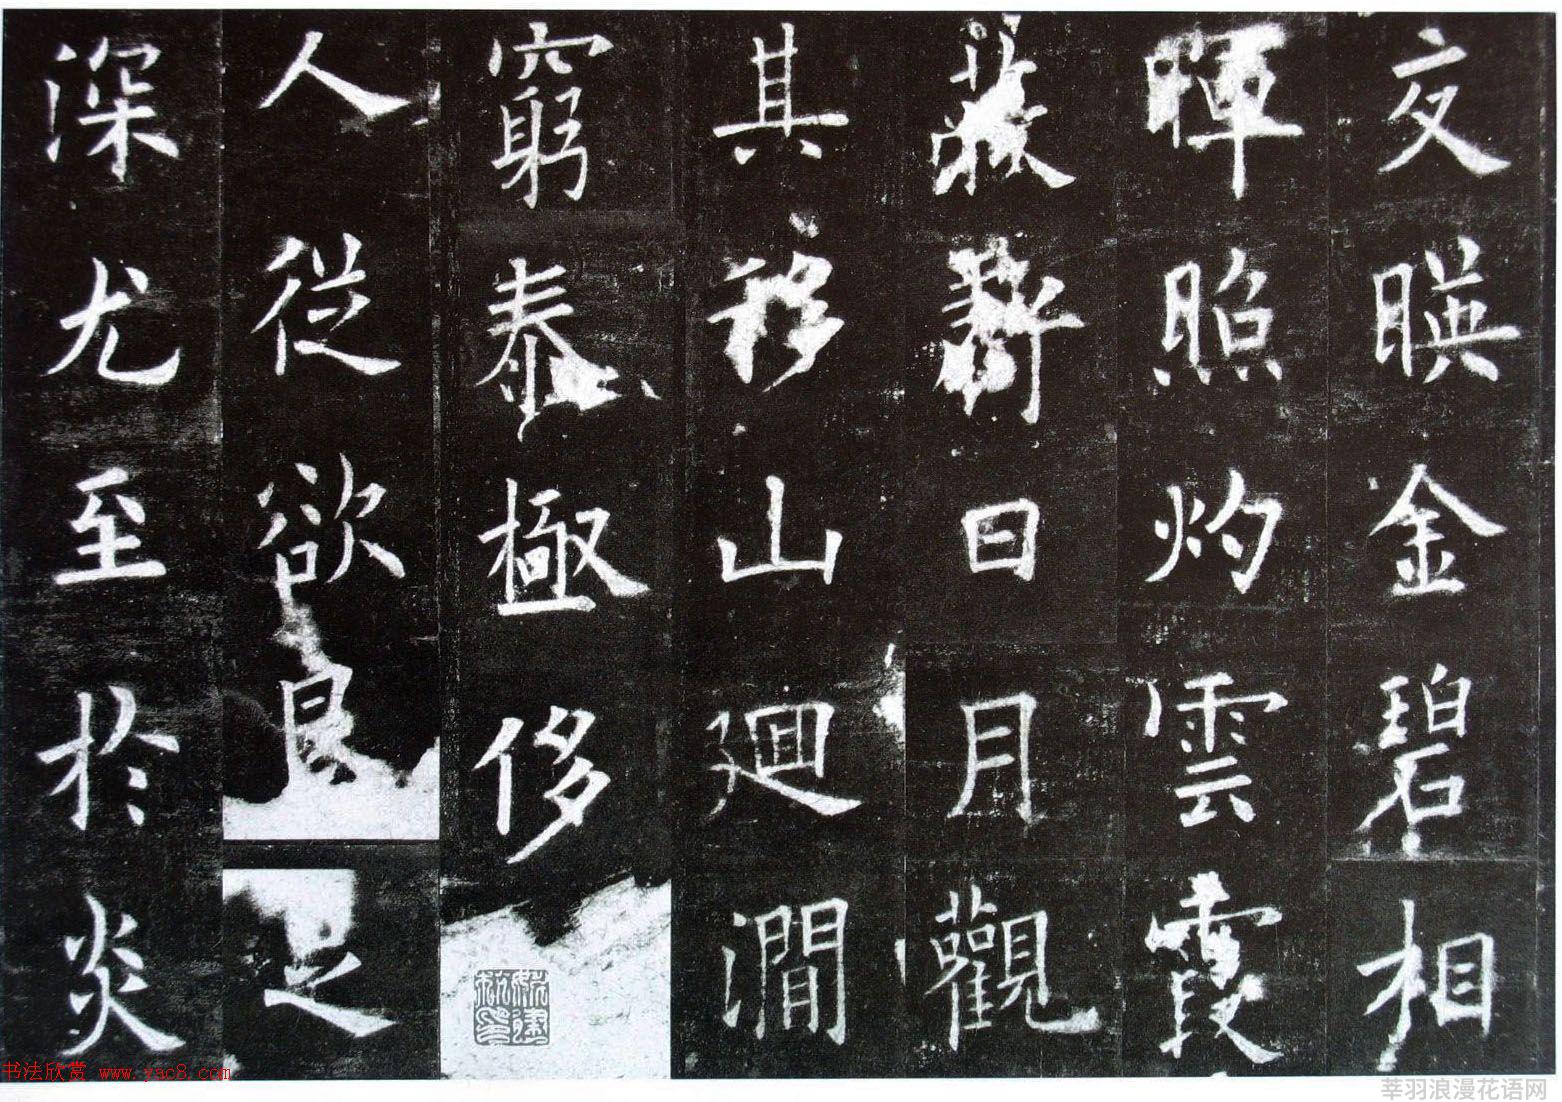 交暎金碧相
暉照灼雲霞
蔽虧日月觀
其移山迴澗
窮泰極侈
人從欲良足
深尤至於炎
书法欣赏 www.yac8.com
莘羽浪漫花语网